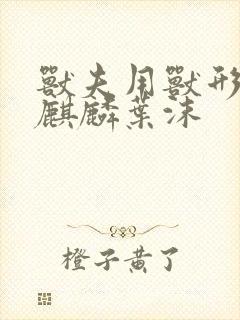 獸夫用獸形
麒麟葉沫
橙子黃了